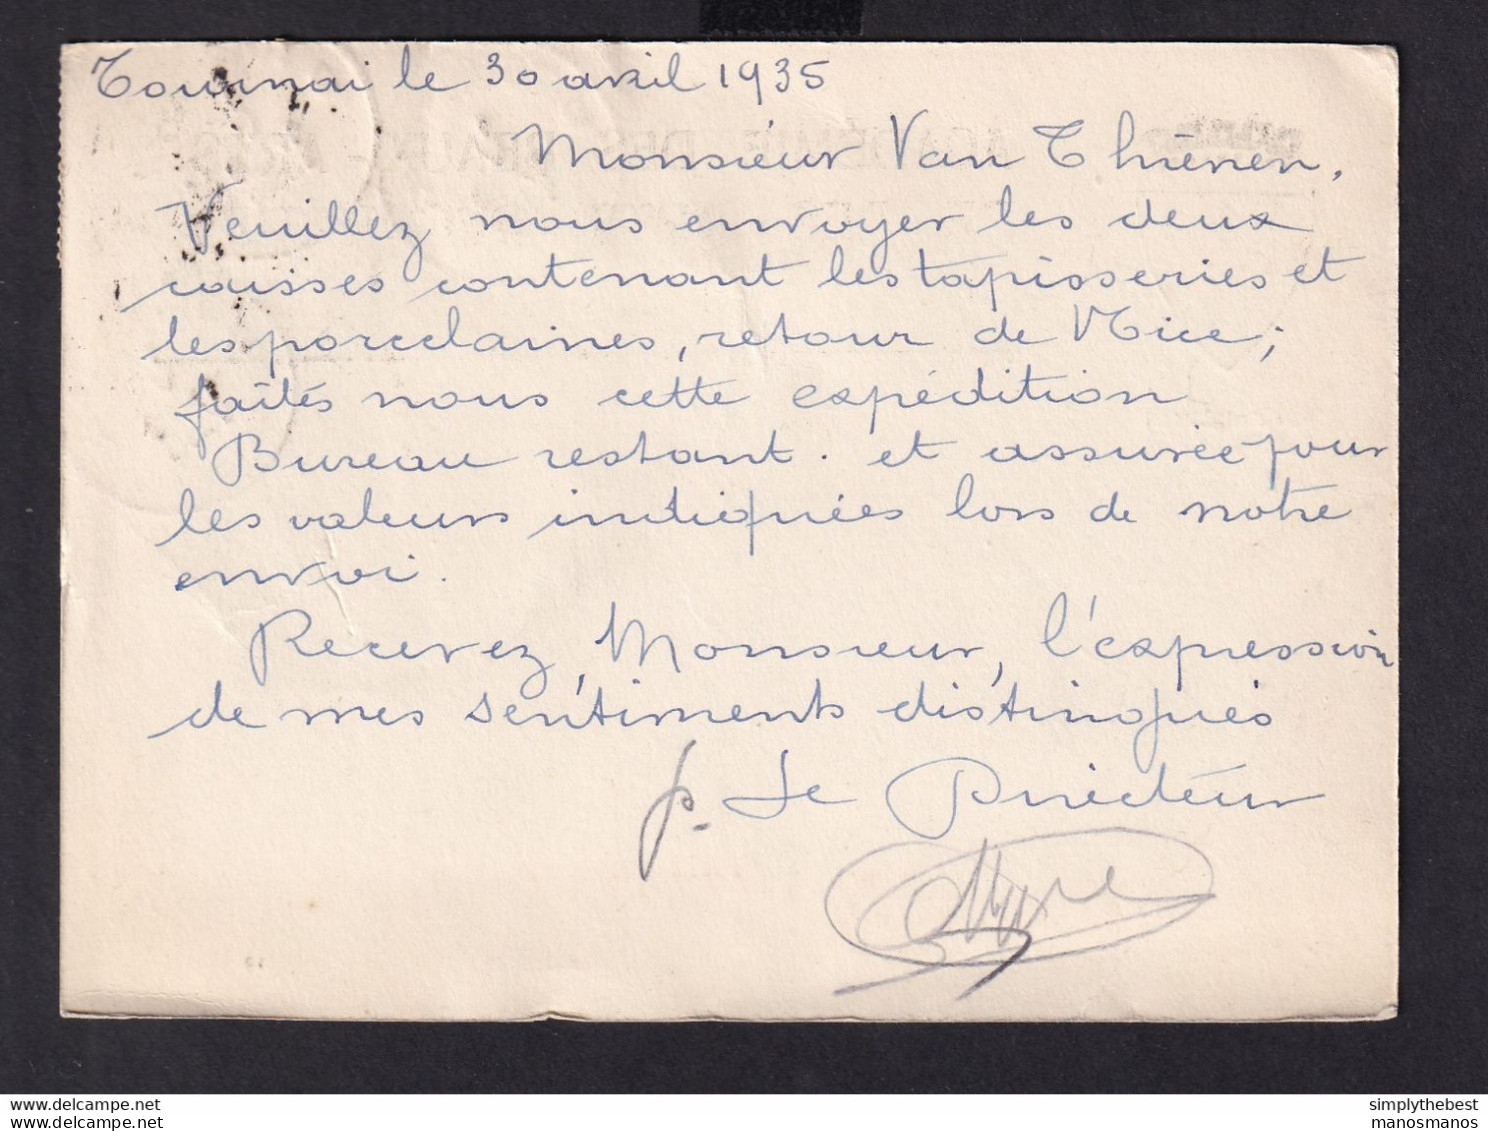 Tournai le 30 avril 1935
Monsieur Van Thienen,
Veuillez nous envoyer les deux
caisses contenant les tapisseries et
les porcelaines, retour de Nice ;
faites nous cette expédition
Bureau restant. et assurée pour
les valeurs indiquées lors de notre
envoi.
Recevez, Monsieur, l'expression
de mes sentiments distingués
p. Le Directeur
www.delcampe.net
simplythebest
www.delcampe.net
manosmanos